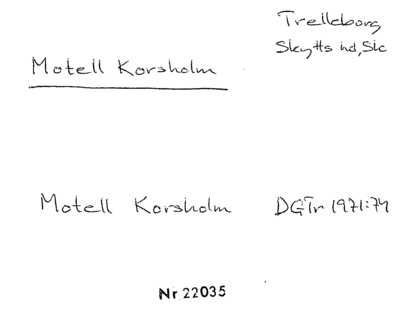 Trelleborg
Skytts hd, Sk
Motell Korsholm
Motell Korsholm DGTr 1971:74
Nr 22035